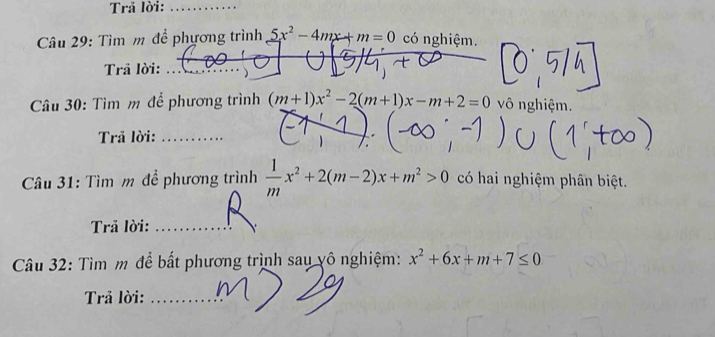 Trả lời: ............
Câu 29: Tìm m để phương trình 5x² − 4mx + m = 0 có nghiệm.
Trả lời: ............ (-∞; 0] ∪ [5/4; +∞ [0; 5/4]
Câu 30: Tìm m để phương trình (m+1)x² − 2(m+1)x − m + 2 = 0 vô nghiệm.
Trả lời: ............ (-1; 1). (-∞; -1) ∪ (1; +∞)
Câu 31: Tìm m để phương trình 1/m x² + 2(m−2)x + m² > 0 có hai nghiệm phân biệt.
Trả lời: ............ R
Câu 32: Tìm m để bất phương trình sau vô nghiệm: x² + 6x + m + 7 ≤ 0
Trả lời: ............ m > 29